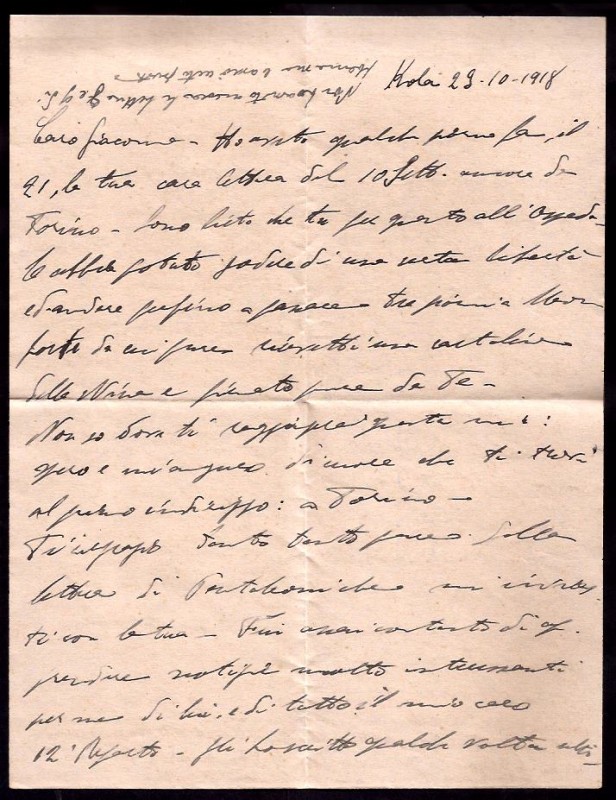 Kola 29-10-1918
Non ho avuto ancora le lettere
Caro Giacomo - Ho avuto qualche giorno fa, il
21, la tua cara lettera del 10 Sett. ancora da
Torino - Sono lieto che tu all'Ospeda-
le abbia potuto godere di una certa libertà
ed andare perfino a passare tre giorni a Mon
forte da cui pure ricevetti una cartolina
della Nina e firmata pure da Te-
Non so dove ti raggiungerà questa mia:
spero e mi auguro di cuore che ti trovi
al primo indirizzo: a Torino -
Ti tanto tanto pure della
lettera di che mi invias
ti con la tua - Fui assai contento di ap.
prendere notizie molto interessanti
per me di lui, e di tutto il mio caro
12° Reparto - gli ho scritto qualche volta